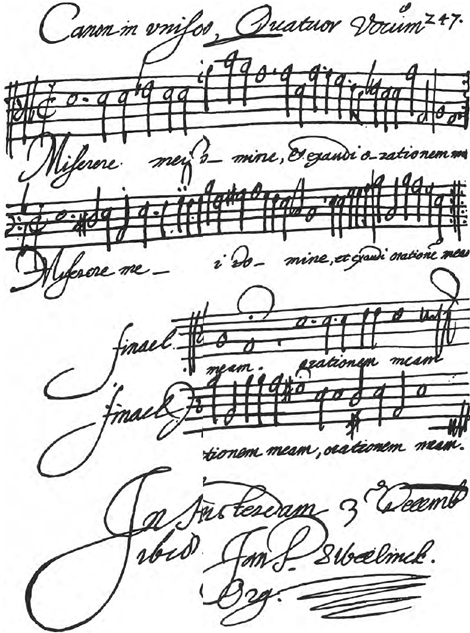 Canon in unisos, Quatuor Vocum 247.
Miserere mei do- mine, et exaudi orationem m
Miserere me - i do- mine, et exaudi orationē meam
finael.
meam. orationem meam
finael
tionem meam, orationem meam.
In Amsterdam 3 Decemb
1618
Jan P. Sweelinck.
Org.